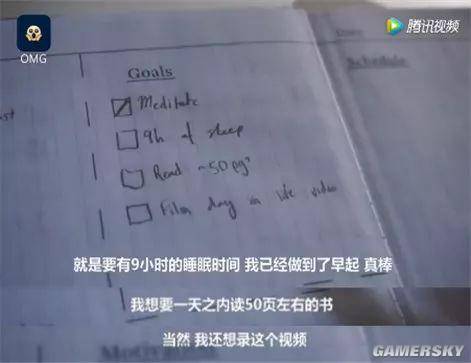 OMG
腾讯视频
Date
Schedule
Goals
Meditate
9h of sleep
Read ~50 pgs
Film day in life video
就是要有9小时的睡眠时间 我已经做到了早起 真棒
我想要一天之内读50页左右的书
当然 我还想录这个视频
GAMERSKY